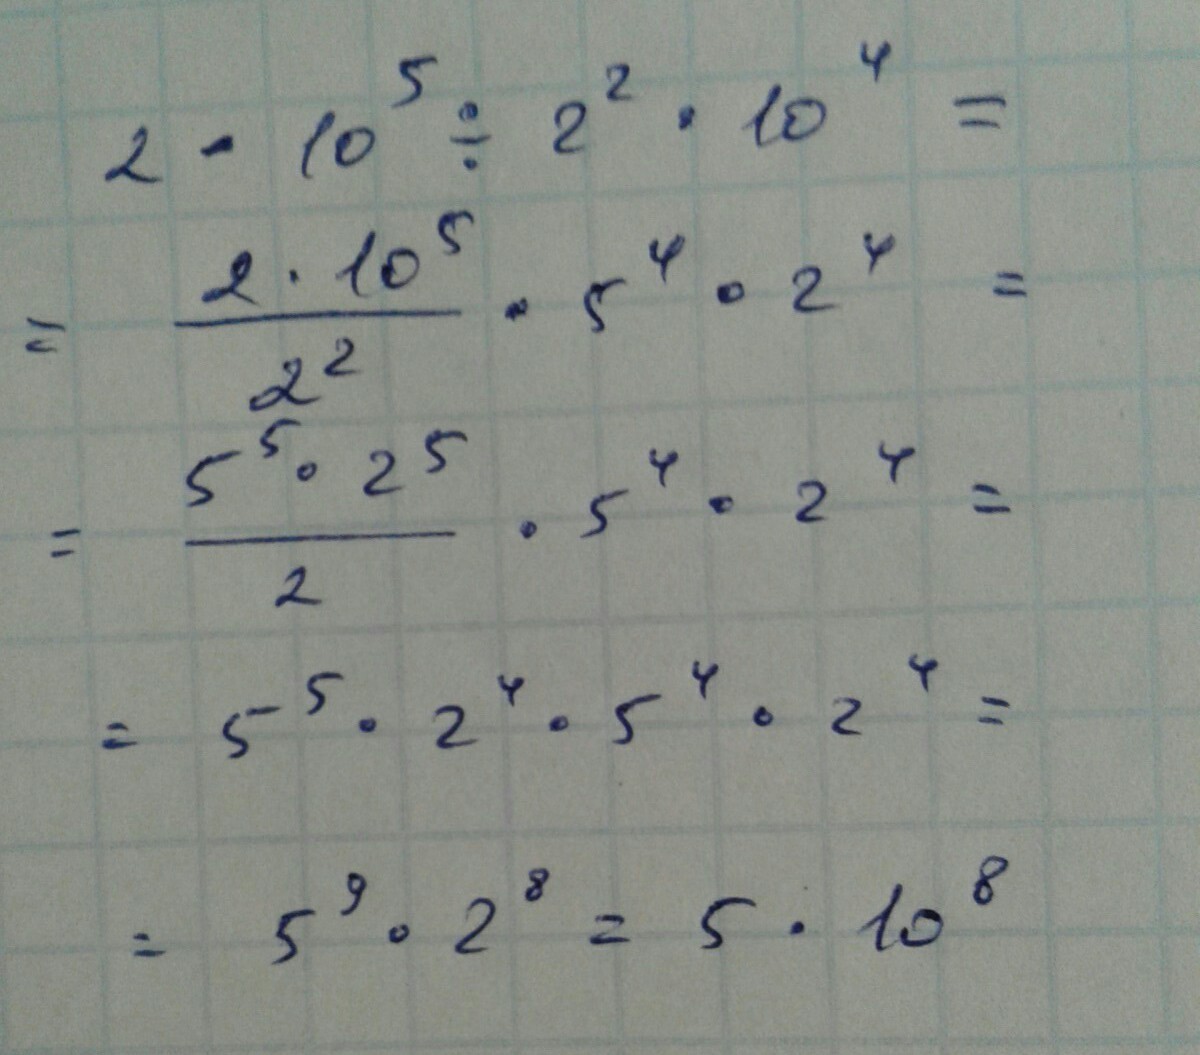 2 · 10⁵ ÷ 2² · 10⁴ =
= (2 · 10⁵)/(2²) · 5⁴ · 2⁴ =
= (5⁵ · 2⁵)/2 · 5⁴ · 2⁴ =
= 5⁵ · 2⁴ · 5⁴ · 2⁴ =
= 5⁹ · 2⁸ = 5 · 10⁸